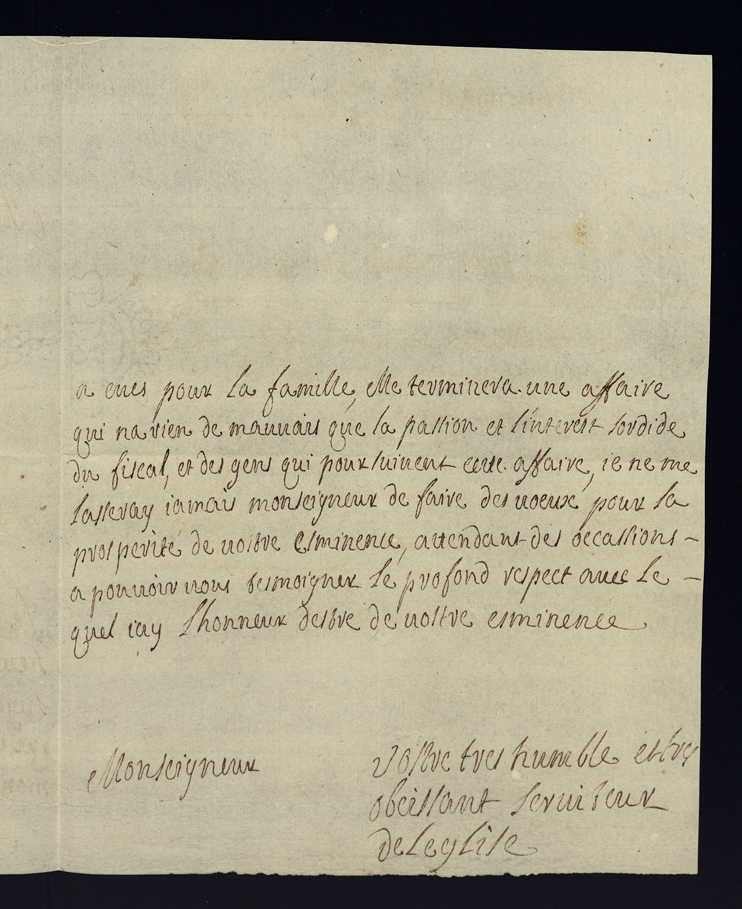 a eues pour la famille, elle terminera une affaire
qui na rien de mauuais que la passion et l'interest sordide
du fiscal, et des gens qui poursuiuent cette affaire, ie ne me
lasseray iamais monseigneur de faire des uoeux pour la
prosperité de uostre esminence, attendant des occassions -
a pouuoir uous tesmoigner le profond respect auec le -
quel iay l'honneur destre de uostre esminence
Monseigneur
vostre tres humble et tres
obeissant seruiteur
deleglise